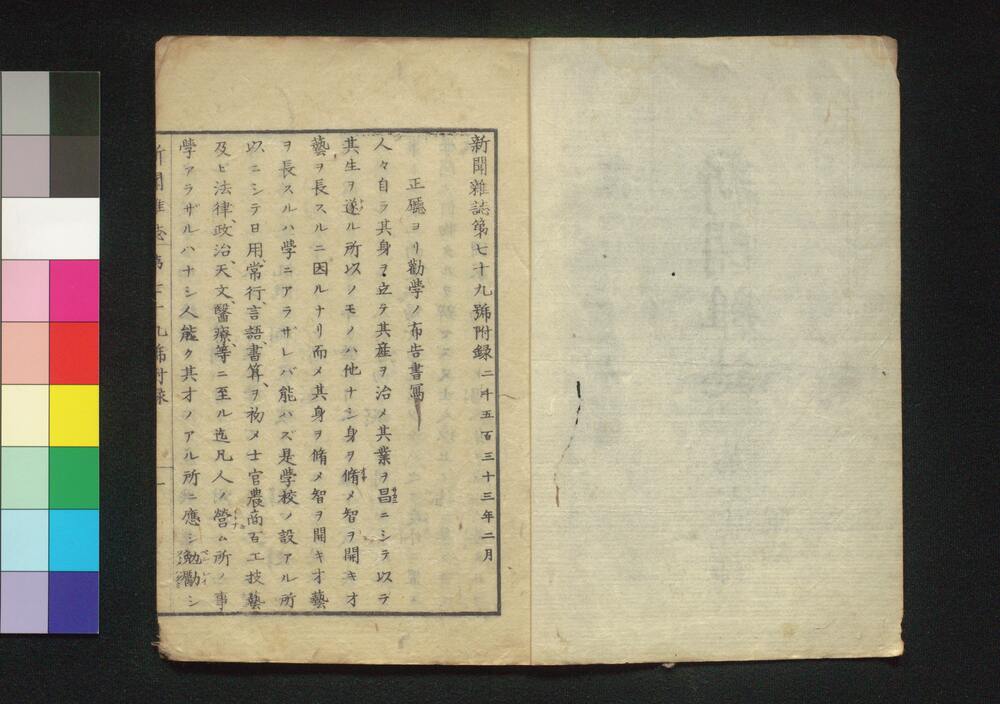 新聞雜誌第七十九號附録 二千五百三十三年二月
正廳ヨリ勸學ノ布告書寫
人々自ラ其身ヲ立テ其産ヲ治メ其業ヲ昌ニシテ以テ
其生ヲ遂ル所以ノモノハ他ナシ身ヲ脩メ智ヲ開キ才
藝ヲ長スルニ因ルナリ而メ其身ヲ脩メ智ヲ開キ才藝
ヲ長スルハ學ニアラザレバ能ハズ是學校ノ設アル所
以ニシテ日用、常行、言語、書算、ヲ初メ士官農商百工技藝
及ビ法律、政治、天文、醫療、等ニ至ル迄凡人ノ營ム所ノ事
學アラザルハナシ人能ク其才ノアル所ニ應シ勉勵シ
新聞雜誌 第七十九號附録 一